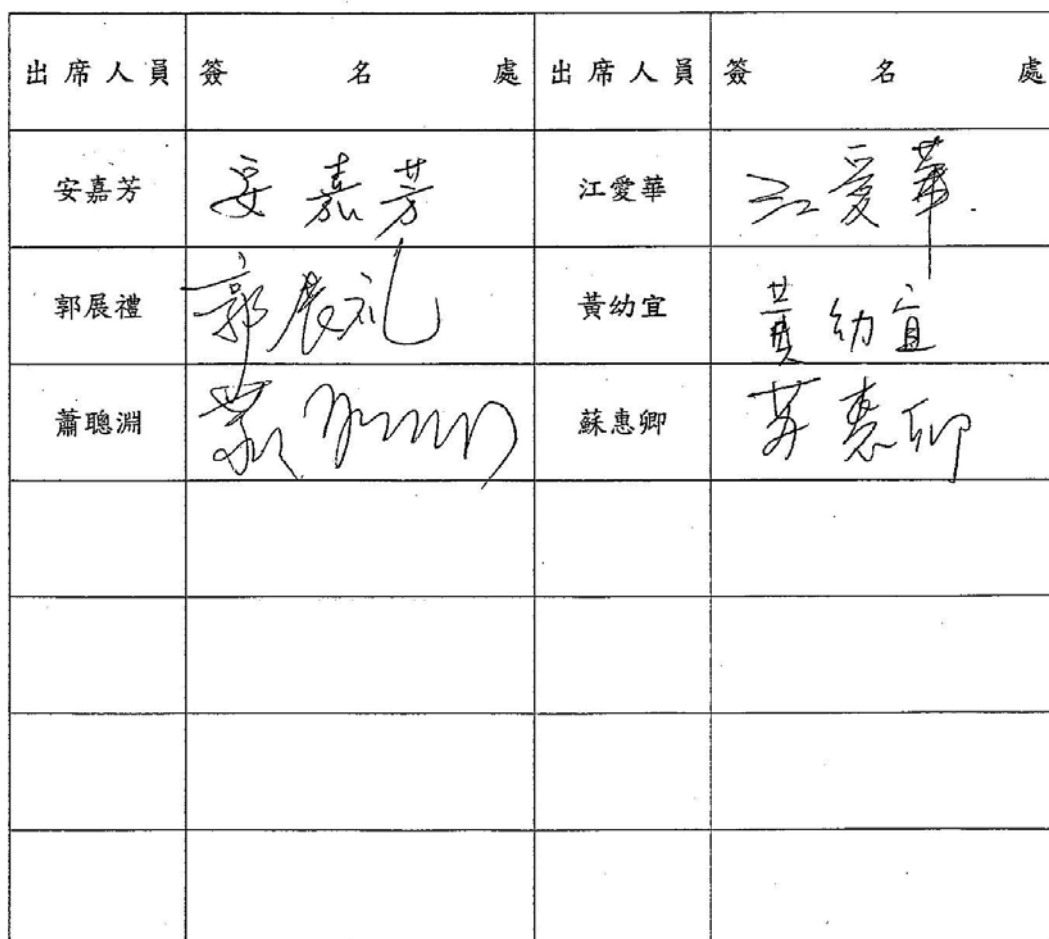 出席人員 簽名處 出席人員 簽名處
安嘉芳 安嘉芳 江愛華 江愛華
郭展禮 郭展礼 黃幼宜 黃幼宜
蕭聰淵 蘇惠卿 苏惠卿